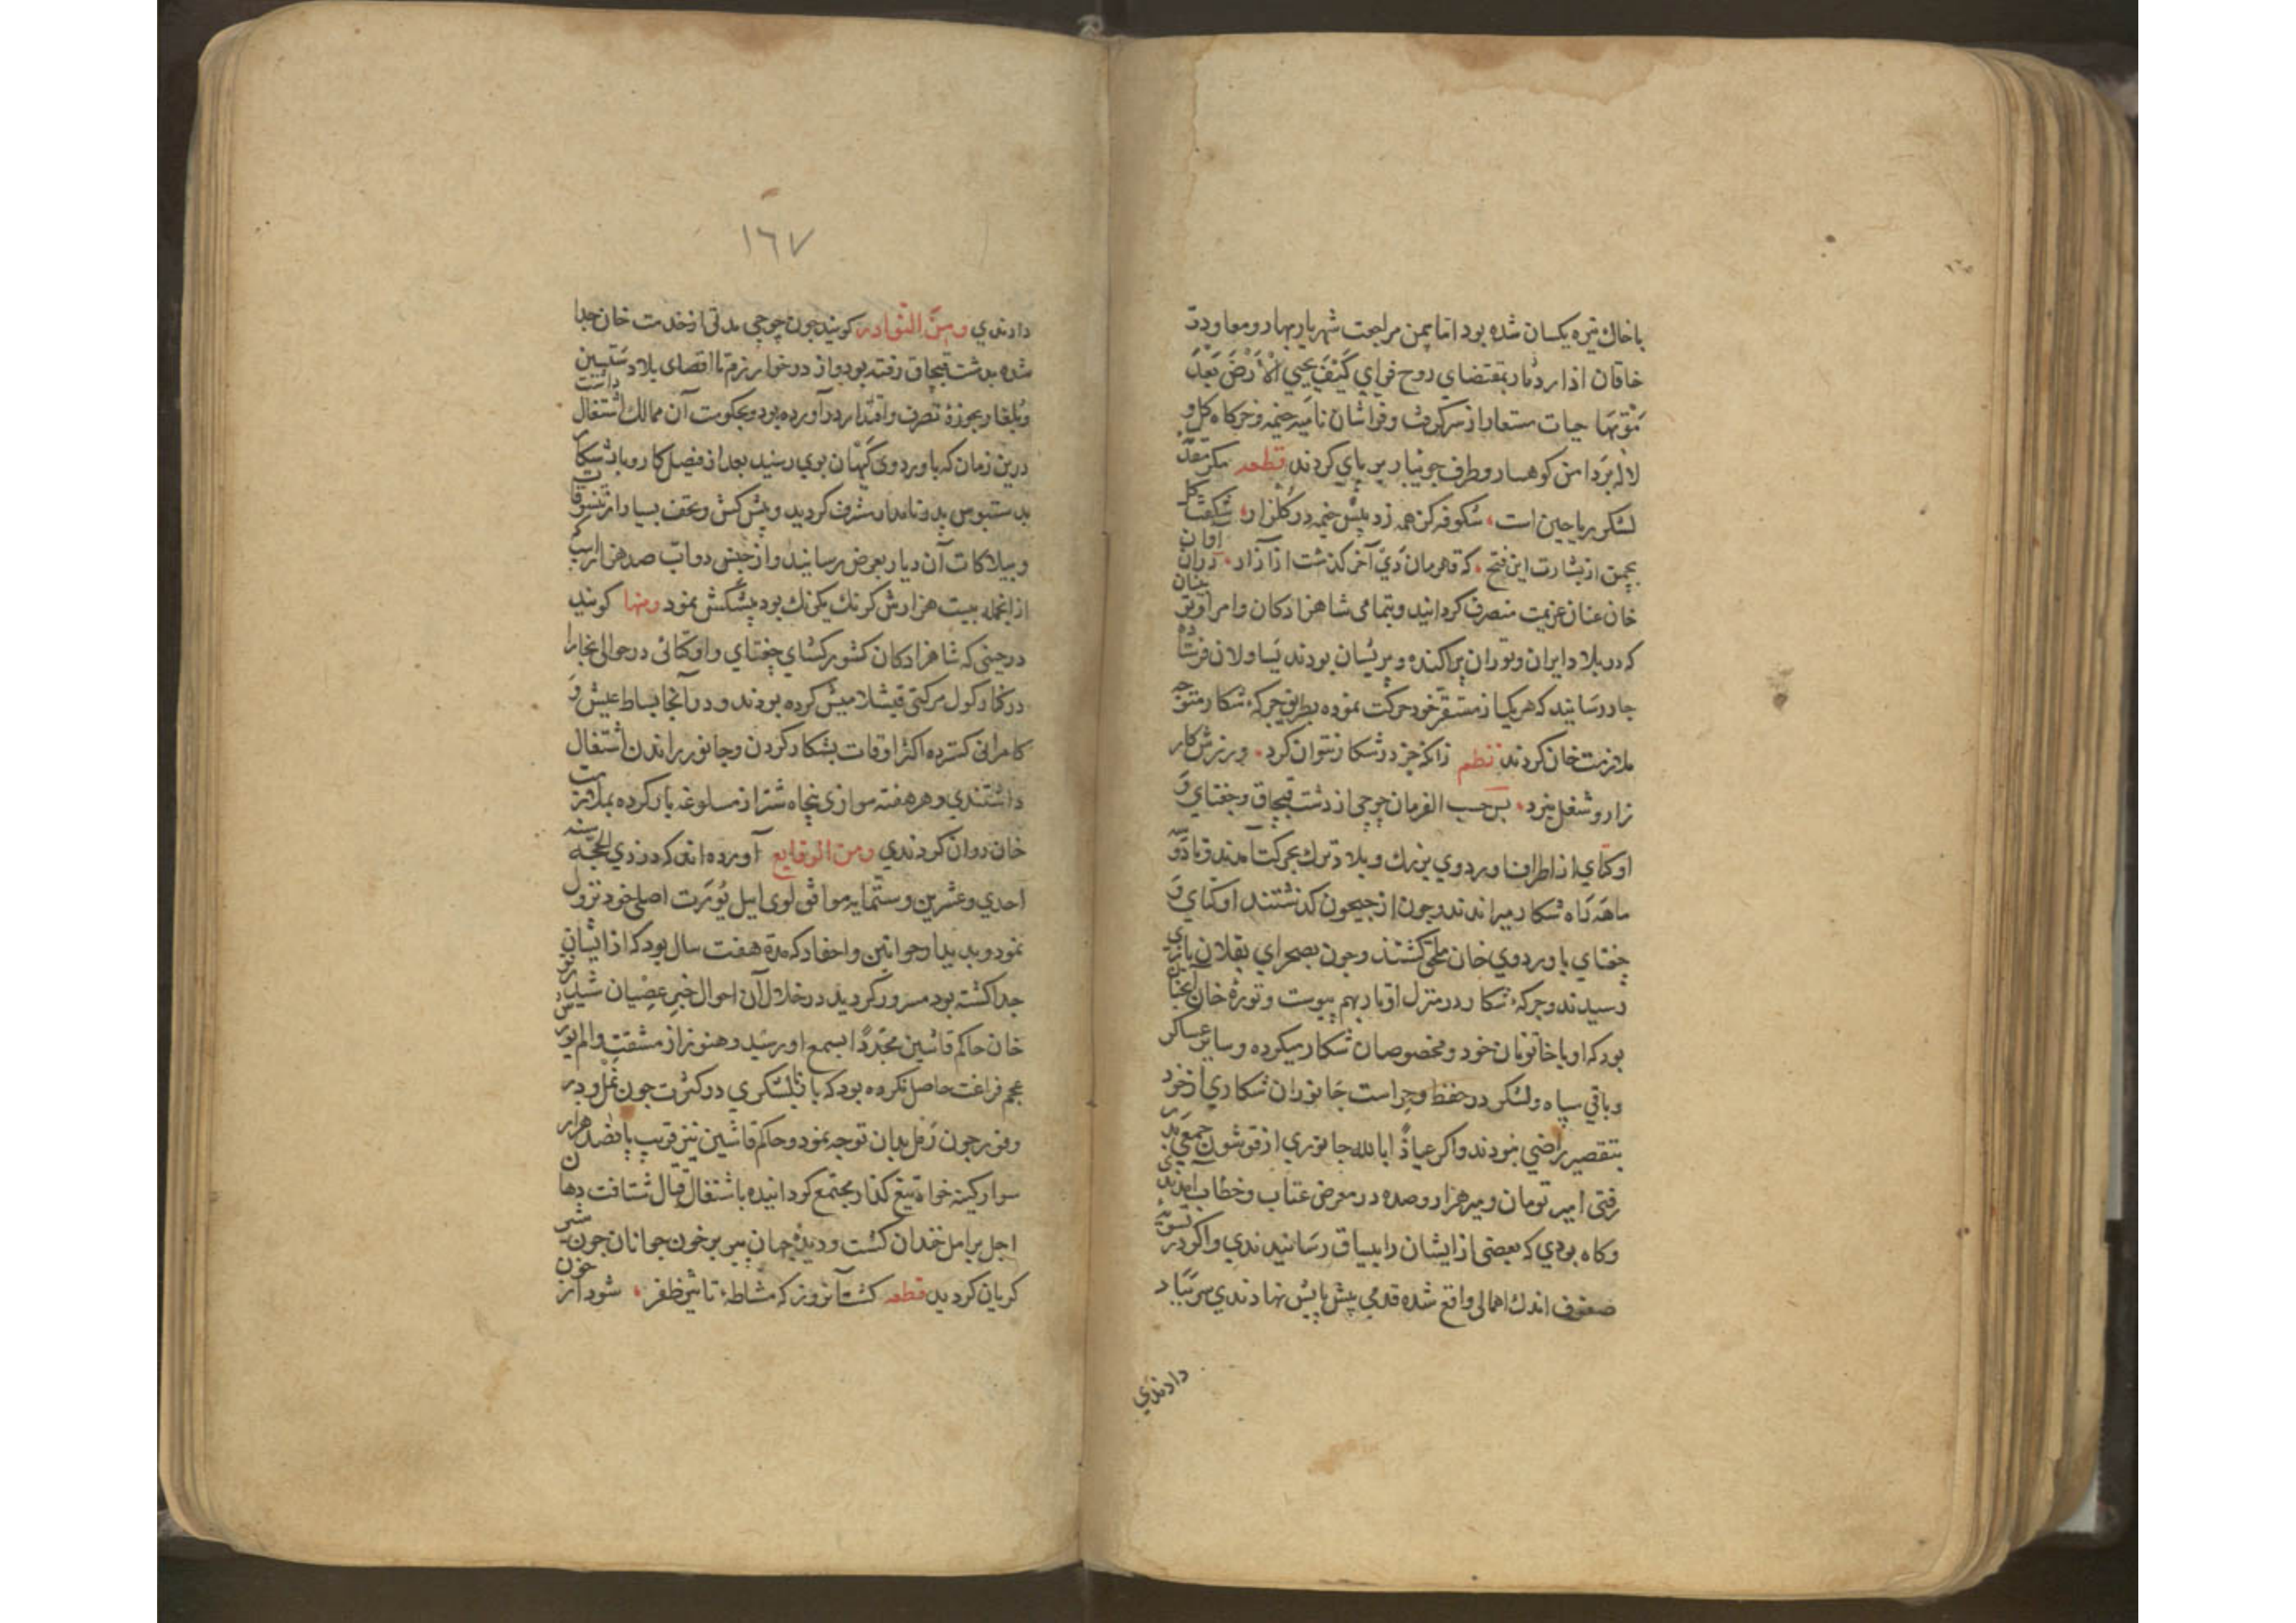 با خاك تیره یکسان شده بود اما بیمن مراجعت شهریار بهار و معاودت
خاقان اذار دمار بمقتضای روح فزای كَيْفَ يُحْيِي الْأَرْضَ بَعْدَ
مَوْتِهَا حیات مستعار از سر گرفت و فراشان نامیه خیمه و خرکاه گل و
لاله بر دامن کوهسار و طرف جویبار بر پای کردند قطعه مکر مقدم
لشکر ریاحین است، شکوفه کز همه زد پیش خیمه در گلزار، شکفت گل
بچمن از بشارت این فتح، که قهرمان دی آخر گذشت از آزار، در ان اوان
خان عنان عزیمت منصرف کردانید و بتمامی شاهزادکان و امرا و نوینان
که در بلاد ایران و توران پراکنده و پریشان بودند یساولان فرستاده
جار رسانید که هر یک از مستقر خود حرکت نموده بطریق جرکه شکار متوجه
ملازمت خان کردند نظم زانکه جز در شکار نتوان کرد، ورزش کار
زار و شغل نبرد، بر حسب الفرمان جوجی از دشت قبچاق و جغتای و
اوکتای از اطراف اوردوی بزرك و بلاد ترك بحرکت آمدند
ماهه راه شکار میراندند و چون از جیحون کذشتند اوکتای و
جغتای باوردوی خان ملحق کشتند و چون بصحرای
رسیدند و جرکه شکار در منزل اوبار بهم پیوست و توره خان آنچنان
بود که او با خاتونان خود و مخصوصان شکار میکرده و سایر عساکر
و باقی سپاه و لشکر در حفظ و حراست جانوران شکاری از خود
بتقصیر راضی نبودند و اگر عیاذا بالله جانوری از قوشون جمعی بدر
رفتی امیر تومان و میر هزار و صده در معرض عتاب و خطاب آمدندی
و کاه بودی که بعضی از ایشان را بیاساق رسانیدندی و اگر در تسویه
صفوف اندك اهمالی واقع شده قدمی پیش یا پس نهادندی سر بباد
دادندی
١٦٧
دادندی ومن النوادر کویند چون جوجی مدتی از خدمت خان جدا
شده بدشت قبچاق رفته بود و از در خوارزم تا اقصای بلاد سقسین
و بلغار بحوزهٔ تصرف و اقتدار در آورده بود و بحکومت آن ممالك اشتغال داشت
درین زمان که باوردوی کیهان پوی رسید بعد از فیصل کار و بار شکار
بدستبوس پدر نامدار مشرف کردید و پیش کش و تحف بسیار از تنسوقات
و بیلاکات آن دیار بعرض رسانید و از جنس دواب صد هزار اسب
از انجمله بیست هزارش کز یك بیك رنك بود پیشکش نمود ومنها کویند
در حینی که شاهزادکان کشورکشای جغتای و اوکتائی در حوالی بخارا
در کنار کول مرکتی قیشلامیش کرده بودند و در آنجا بساط عیش و
کامرانی کسترده اکثر اوقات بشکار کردن و جانور پراندن اشتغال
داشتندی و هر هفته موازی پنجاه شتر از سلوغه بار کرده بملازمت
خان روان کردندی ومن الوقایع آورده اند که در ذی الحجه سنه
احدی و عشرین و ستمایه موافق لوی ایل یورت اصلی خود نزول
نمود و بدیدار خواتین و احفاد که مدة هفت سال بود که از ایشان
جدا کشته بود مسرور کردید در خلال آن احوال خبر عصیان شیدر
خان حاکم قاشین مجددا بسمع او رسید و هنوز از مشقت و الم یورش
عجم فراغت حاصل نکرده بود که با لشکری در کثرت چون نمل و در
وفور چون رمل بدان توجه نمود و حاکم قاشین نیز قریب پانصد هزار
سوار کینه خواه تیغ گذار مجتمع کردانیده باشتغال قتال شتافت دهان
اجل بر امل خندان کشت و دیدهٔ جهان پیر بر خون جوانان چون شیر
کریان کردید قطعه کشت آنروز که مشاطهٔ تاثیر ظفر، شود از خون